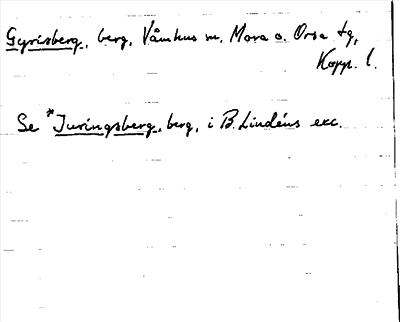 Gyrisberg, berg, Våmhus sn, Mora o. Orsa tg,
Kopp. l.
Se *Juringsberg, berg, i B. Lindéns exc.